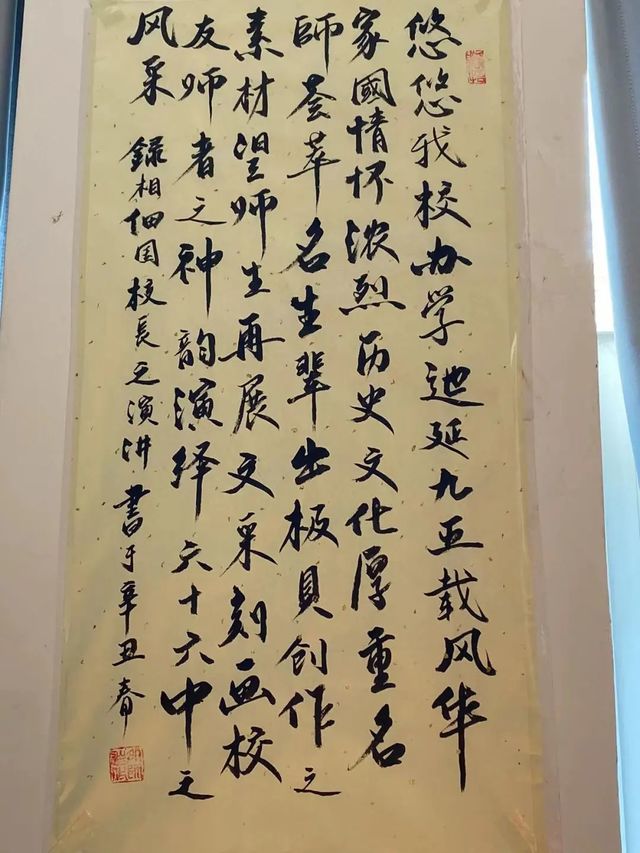 悠悠我校办学迆延九五载风华
家國情怀浓烈历史文化厚重名
師荟萃名生辈出极具创作之
素材望师生再展文采刻画校
友师者之神韵演绎六十六中之
风采
录相佃国校长之演讲 書于辛丑春